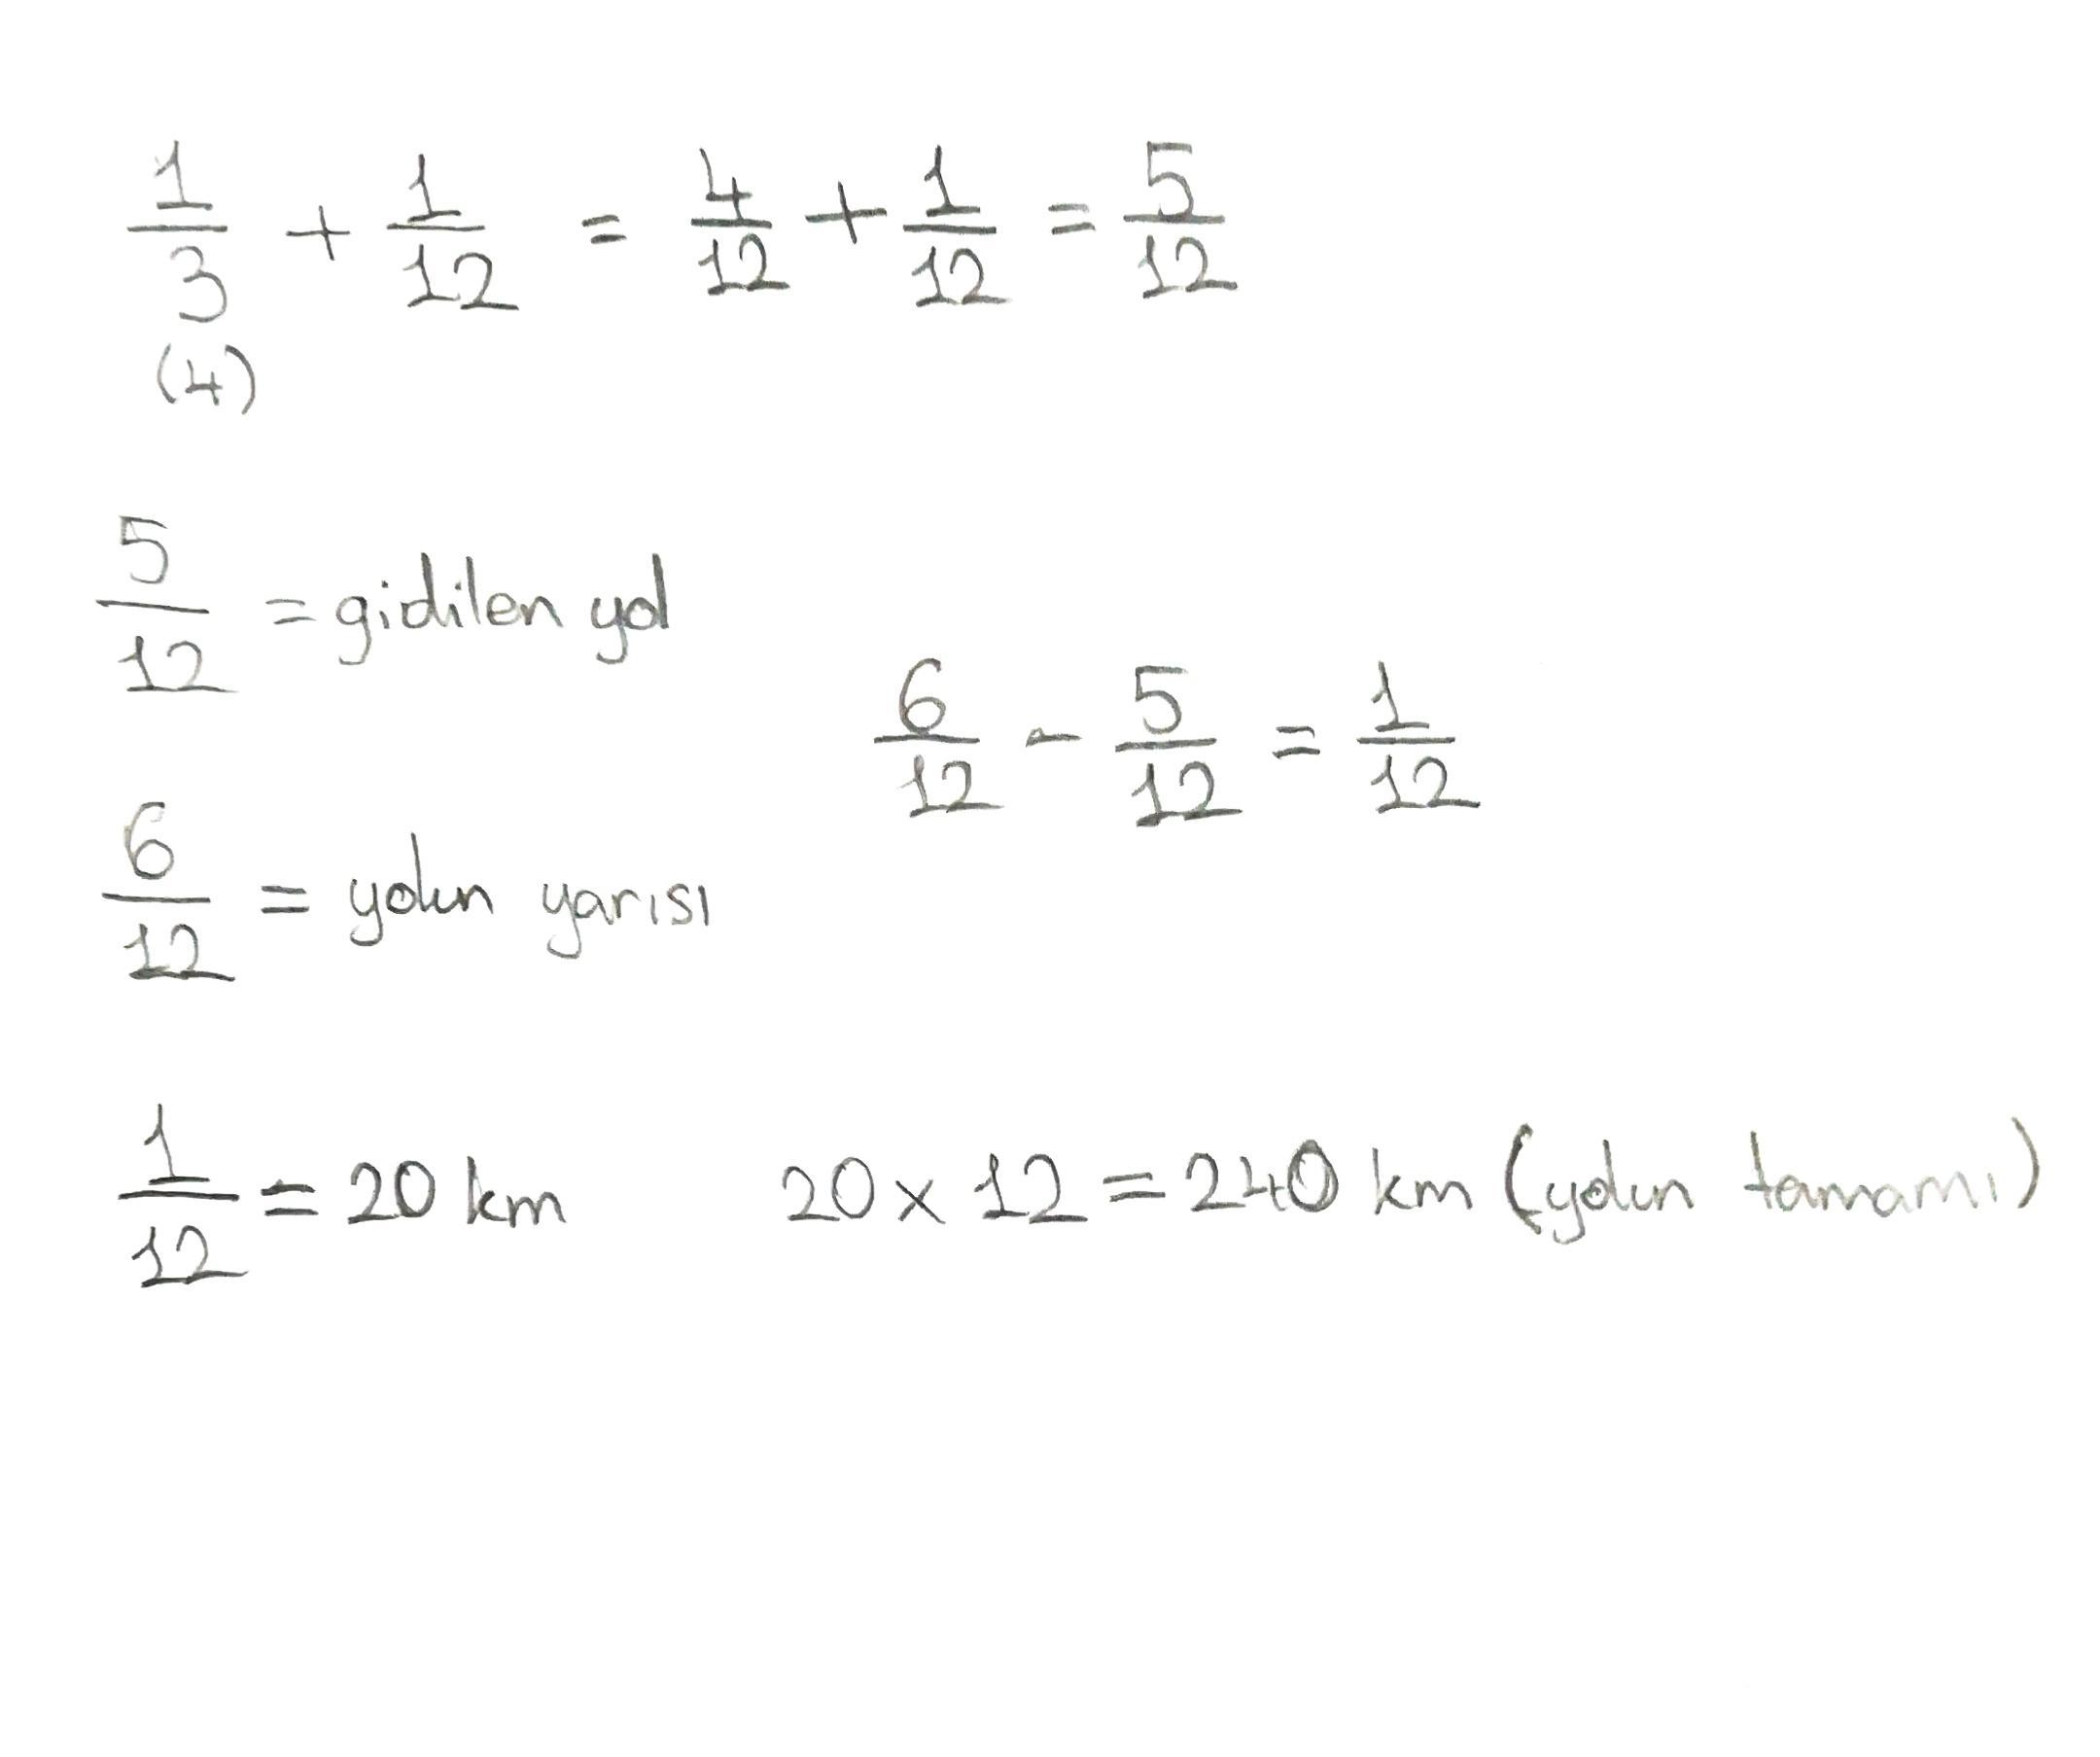 1/3 + 1/12 = 4/12 + 1/12 = 5/12
(4)
5/12 = gidilen yol
6/12 - 5/12 = 1/12
6/12 = yolun yarısı
1/12 = 20 km 20 x 12 = 240 km (yolun tamamı)